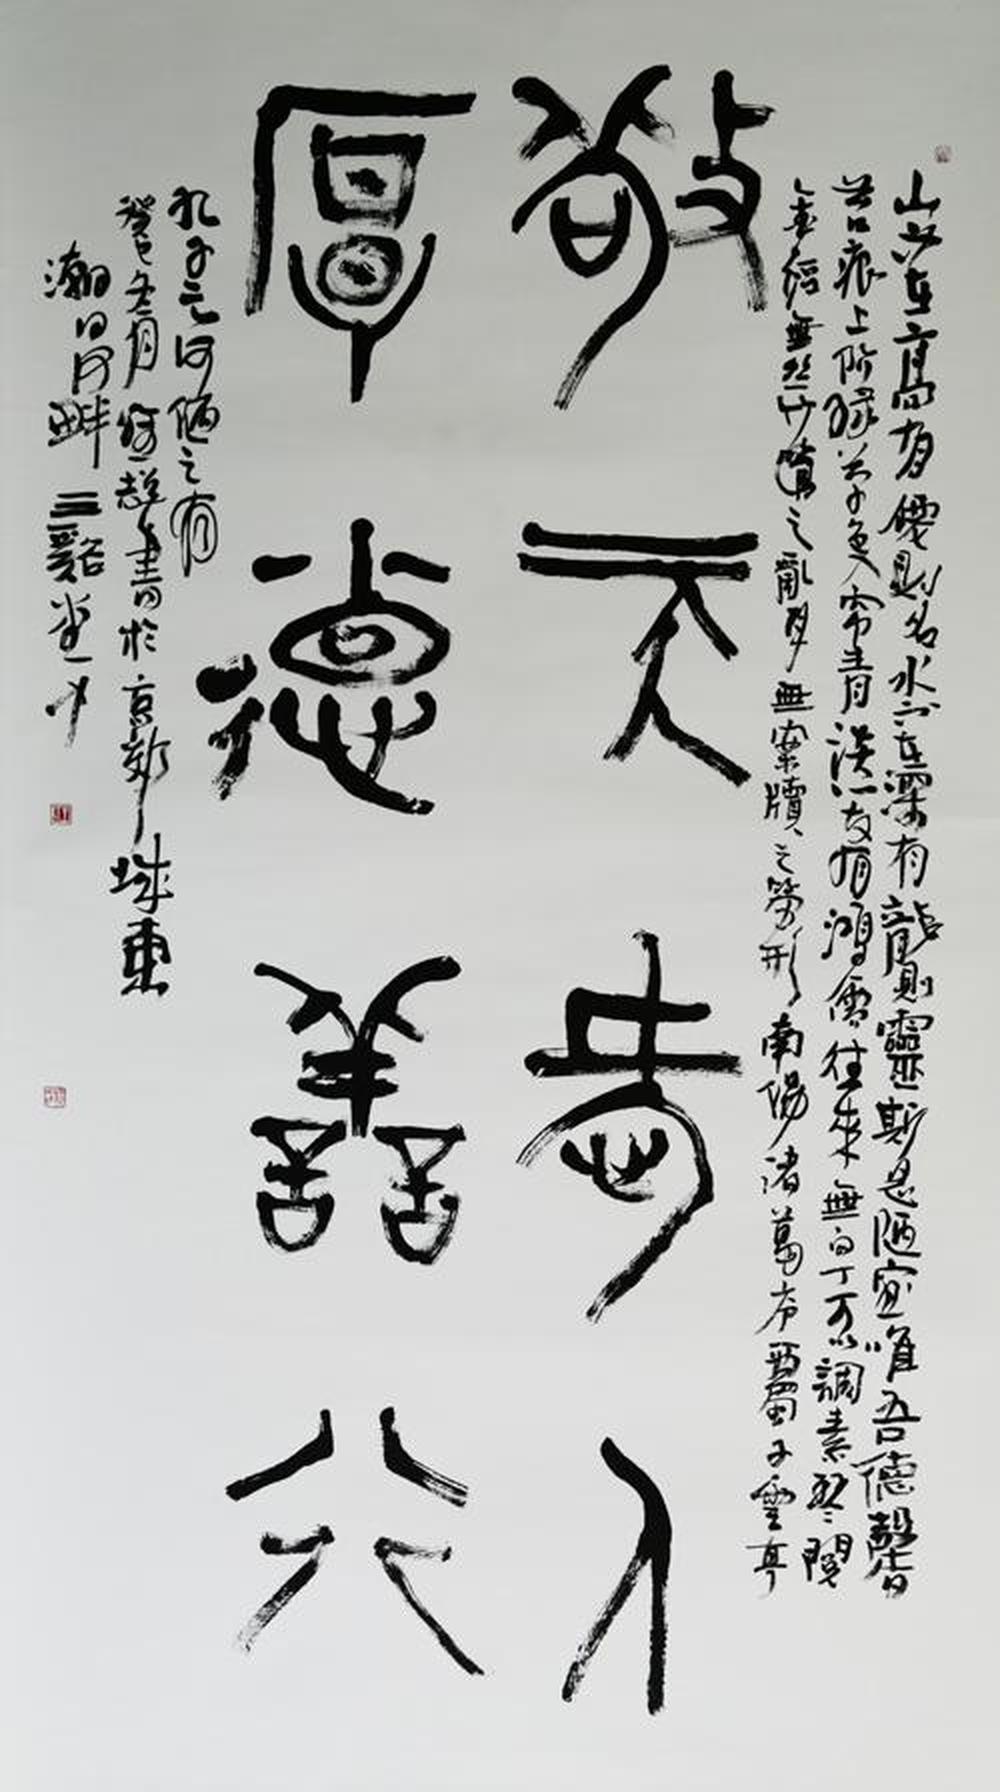 山不在高有僊則名水不在深有龍則靈斯是陋室唯吾德馨
苔痕上階緑草色入帘青談笑有鴻儒往來無白丁可以調素琴閱
金經無丝竹之亂耳無案牘之勞形南陽諸葛廬西蜀子雲亭
敬天愛人
厚德善行
孔子云何陋之有
癸巳冬月書於京郊城東
河畔三谿堂